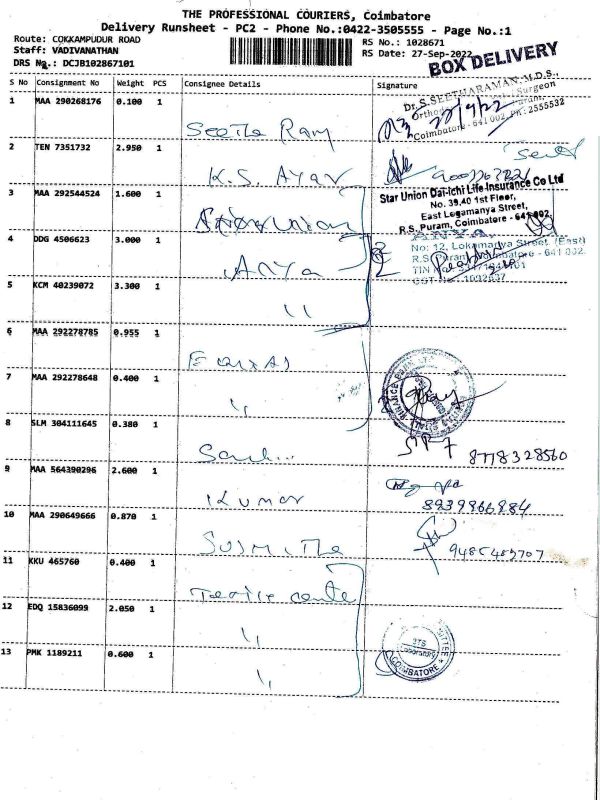 THE PROFESSIONAL COURIERS, Coimbatore
Delivery Runsheet - PC2 - Phone No.:0422-3505555 - Page No.:1
Route: COKKAMPUDUR ROAD
RS No.: 1028671
Staff: VADIVANATHAN
RS Date: 27-Sep-2022
BOX DELIVERY
DRS No.: DCJB102867101
S No Consignment No Weight PCS Consignee Details Signature
1 MAA 290268176 0.100 1 Seetha Ram
Dr. S. SEETHARAMAN, M.D.S.,
Surgeon
Coimbatore - 641 002. PH: 2555532
2 TEN 7351732 2.950 1 K.S. Ayar
3 MAA 292544524 1.600 1 Union
Star Union Dai-ichi Life Insurance Co Ltd
No. 39,40 1st Floor,
East Legamanya Street,
R.S. Puram, Coimbatore - 641 002.
4 DDG 4506623 3.000 1 Arya
No: 12, Lokamanya Street, (East)
R.S. Puram, Coimbatore - 641 002.
5 KCM 40239072 3.300 1 "
6 MAA 292278785 0.955 1
7 MAA 292278648 0.400 1 "
8 SLM 304111645 0.380 1
8778328560
9 MAA 564390296 2.600 1 Kumar
8939966984
10 MAA 290649666 0.870 1 Susmitha
11 KKU 465760 0.400 1 Textile centre
12 EDQ 15836099 2.050 1 "
13 PMK 1189211 0.600 1 "
COIMBATORE